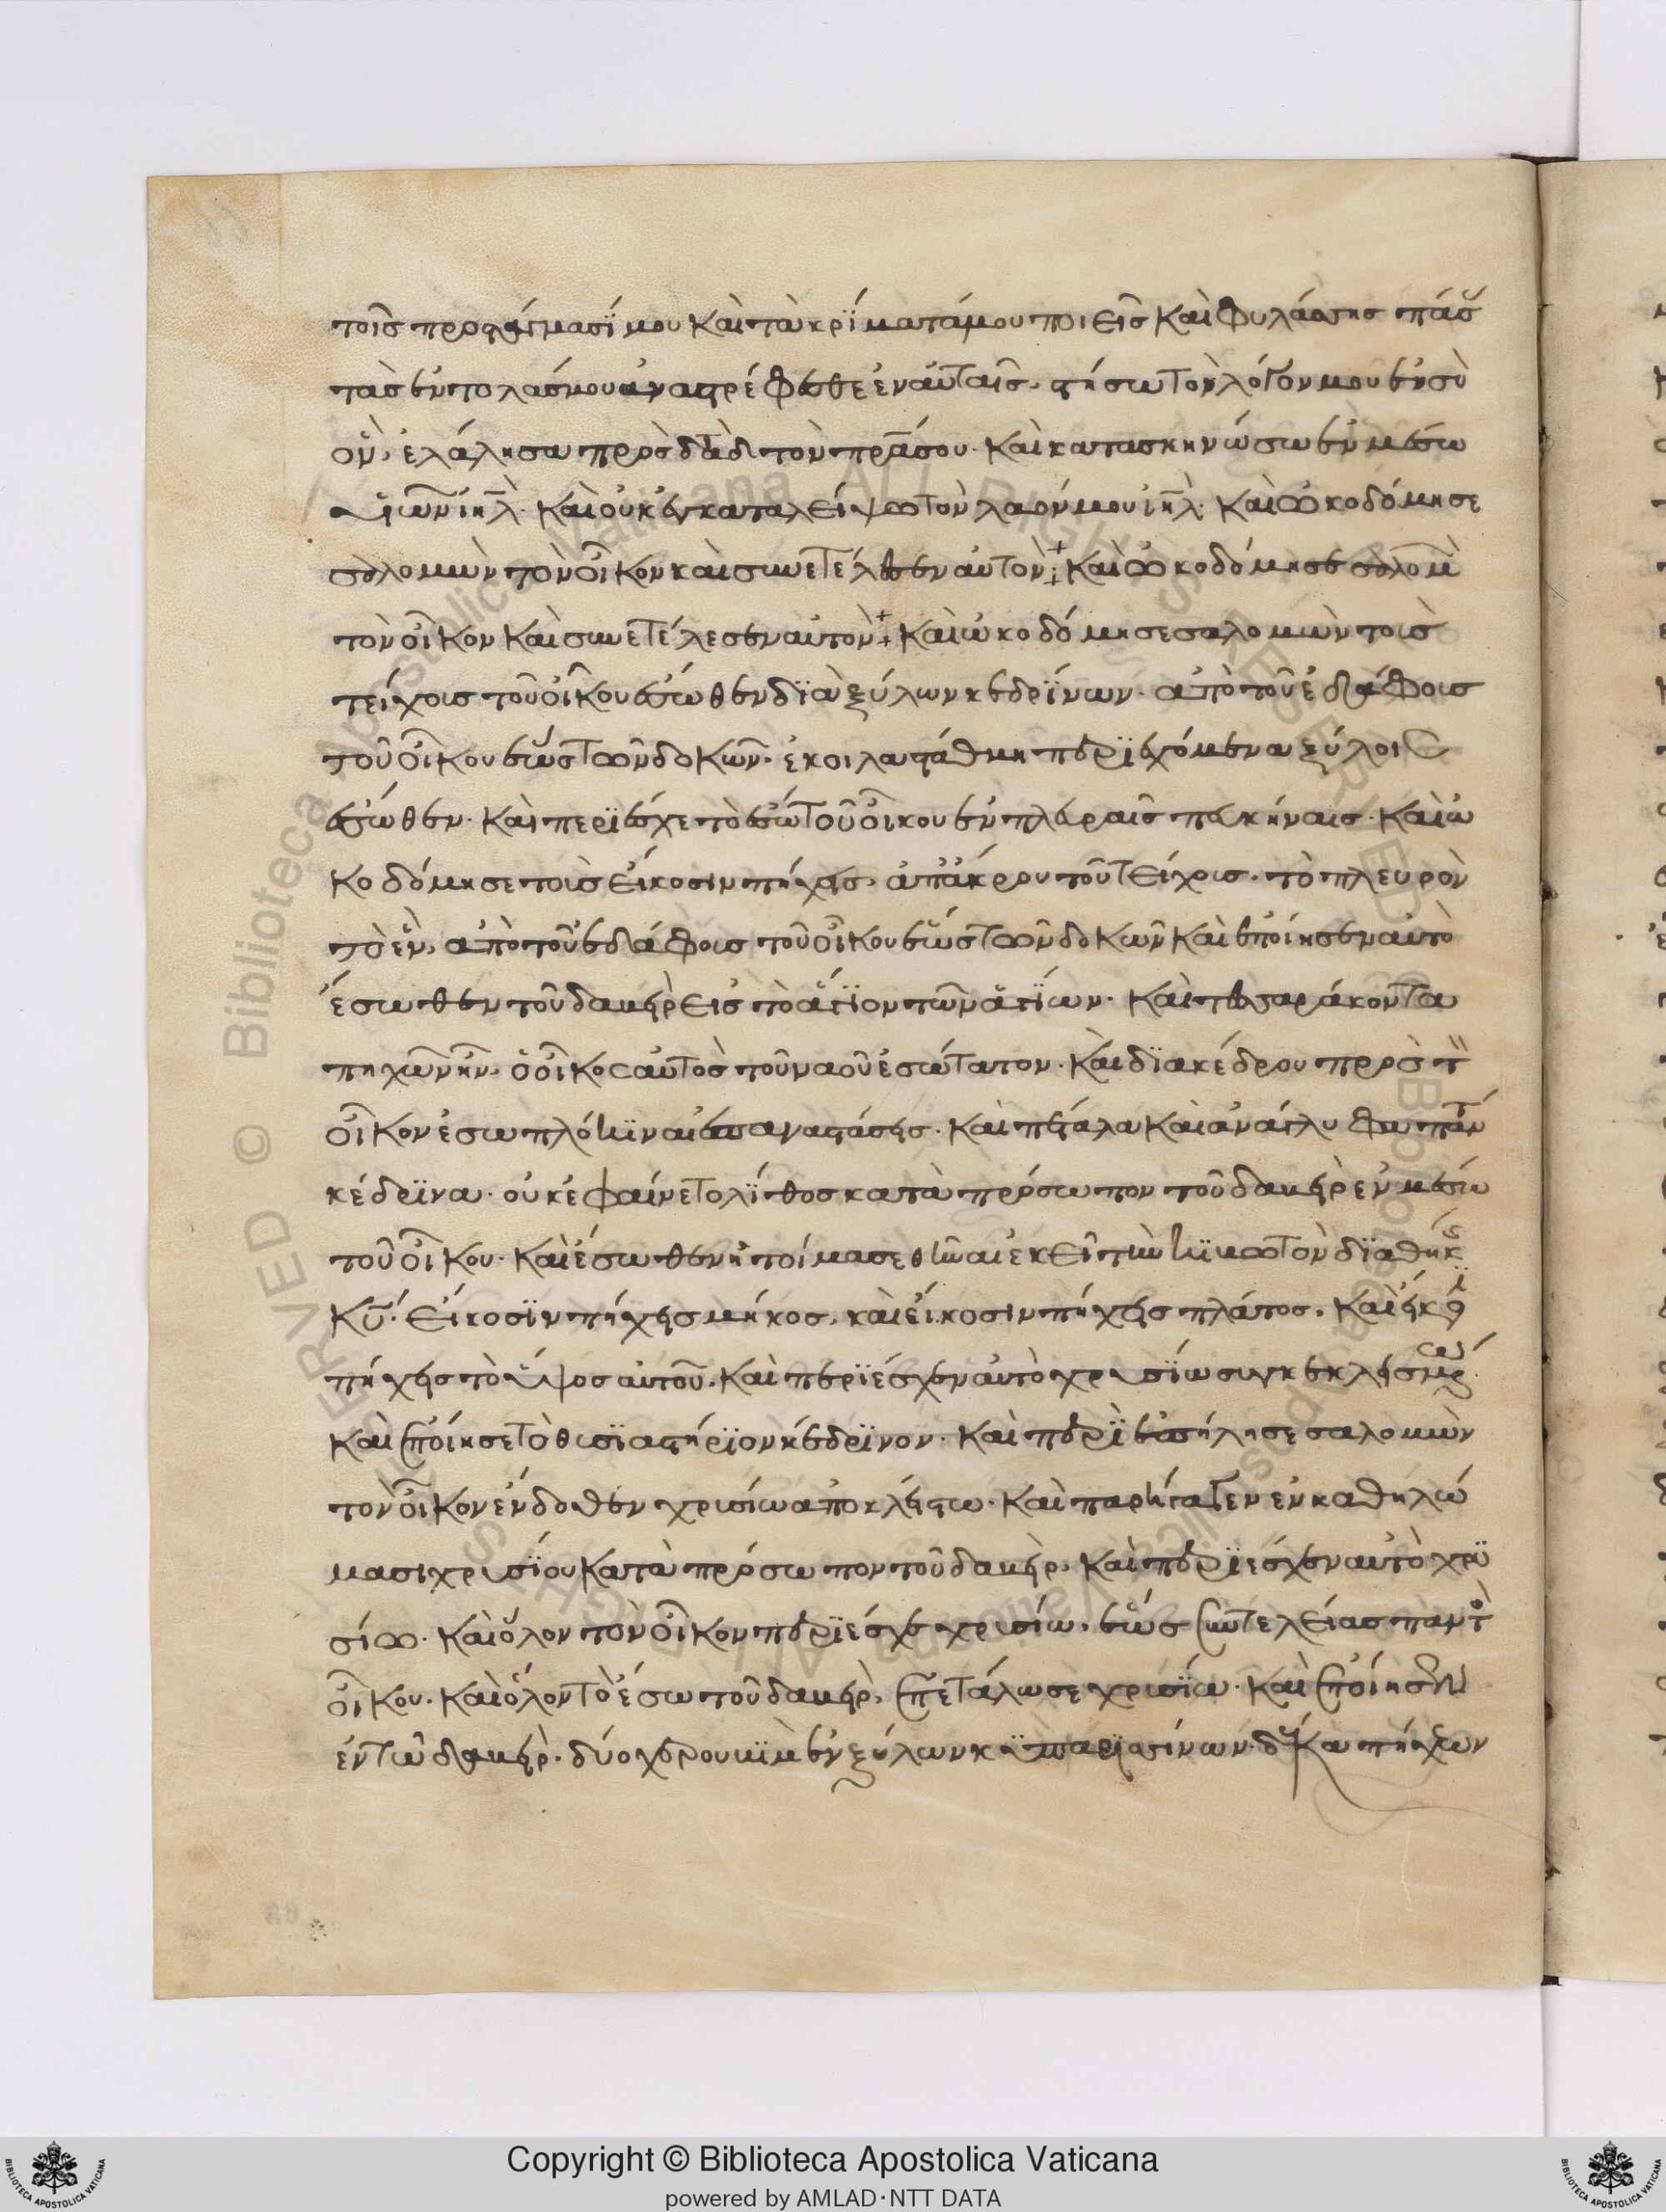 τοῖς προστάγμασί μου καὶ τὰ κρίματά μου ποιεῖς καὶ φυλάσσης πάσ
τὰς ἐντολάς μου ἀναστρέφεσθε ἐν αὐταῖς, στήσω τὸν λόγον μου ἐν σὺ
ὃν, ἐλάλησα πρὸς δαδ τὸν πρα σου. καὶ κατασκηνώσω ἐν μέσω
υἱῶν ιηλ. καὶ οὐκ ἐγκαταλείψω τὸν λαόν μου ιηλ. καὶ ὠκοδόμησε
σολομὼν τὸν οἶκον καὶ συνετέλεσεν αὐτὸν καὶ ὠκοδόμησε σολομ
τὸν οἶκον καὶ συνετέλεσεν αὐτὸν καὶ ὠκοδόμησε σαλομὼν τοὺς
τείχους τοῦ οἴκου ἔσωθεν διὰ ξύλων κεδρίνων. ἀπὸ τοῦ ἐδάφους
τοῦ οἴκου ἕως τῶν δοκῶν. ἐκοιλαστάθμη περιεχόμενα ξύλοις
ἔσωθεν. καὶ περιέσχε τὸ ἔσω τοῦ οἴκου ἐν πλευραῖς πευκήναις. καὶ ὠ
κοδόμησε τοὺς εἴκοσιν πήχεις, ἀπ' ἄκρου τοῦ τείχους. τὸ πλευρὸν
τὸ ἓν, ἀπὸ τοῦ ἐδάφους τοῦ οἴκου ἕως τῶν δοκῶν καὶ ἐποίησεν αὐτὸ
ἔσωθεν τοῦ δαβεὶρ εἰς τὸ ἅγιον τῶν ἁγίων. καὶ τεσσαράκοντα
πηχῶν ἦν, ὁ οἶκος αὐτὸς τοῦ ναοῦ ἐσώτατον. καὶ διακέδρου πρὸς τ
οἶκον ἔσω πλόκην αι ἐπαναστάσεις. καὶ πέταλα καὶ ἀνάγλυφα πάντ
κέδρινα. οὐκ ἐφαίνετο λίθος κατὰ πρόσωπον τοῦ δαβεὶρ ἐν μέσω
τοῦ οἴκου. καὶ ἔσωθεν ἡτοίμασε θῆναι ἐκεῖ τὴν κιβωτὸν διαθήκ
κυ. εἴκοσιν πήχεις μῆκος, καὶ εἴκοσιν πήχεις πλάτος. καὶ εἴκο
πήχεις τὸ ὕψος αὐτοῦ. καὶ περιέσχεν αὐτὸ χρυσίω συγκεκλεισμ
καὶ ἐποίησε τὸ θυσιαστήριον κέδρινον. καὶ περιεπήλησε σαλομὼν
τὸν οἶκον ἔνδοθεν χρυσίω ἀποκλείστω. καὶ παρήγαγεν ἐν καθηλώ
μασι χρυσίου κατὰ πρόσωπον τοῦ δαβεὶρ, καὶ περιέσχεν αὐτὸ χρυ
σίω. καὶ ὅλον τὸν οἶκον περιέσχε χρυσίω. ἕως συντελείας παντ
οἴκου. καὶ ὅλον τὸ ἔσω τοῦ δαβεὶρ, ἐπετάλωσε χρυσίω. καὶ ἐποίησεν
ἐν τῶ δαβεὶρ. δύο χερουβὶμ ἐν ξύλων κυπαρισίνων. δέκα πήχεων